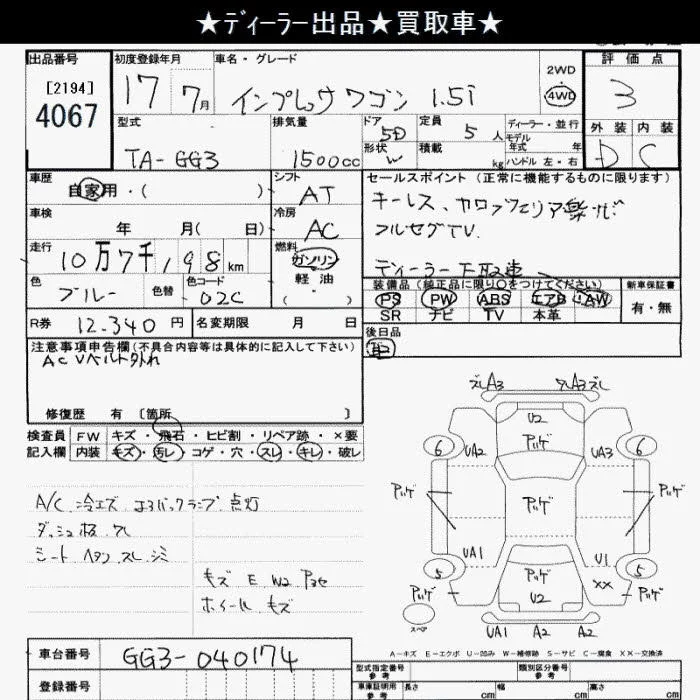 ★ディーラー出品★買取車★
出品番号
[2194]
4067
初度登録年月
17 7月
車名・グレード
インプレッサワゴン 1.5i
2WD
・
4WD
評価点
3
外装 内装
D C
型式
TA-GG3
排気量
1500cc
ドア
5D
形状
W
定員
5人
積載
kg
ディーラー・並行
モデル
年式 年
ハンドル 左・右
車歴
自家用・( )
シフト
AT
車検
年 月( 日)
冷房
AC
走行
10万7千198km
燃料
ガソリン
軽油
( )
色
ブルー
色替
色コード
02C
R券
12,340円
名変期限 月 日
セールスポイント(正常に機能するものに限ります)
キーレス、カロッツェリア楽ナビ
フルセグTV.
ディーラー下取車
装備品(純正品に限り○をつけてください)
PS PW ABS エアB AW
SR ナビ TV 本革
新車保証書
有・無
後日品
注意事項申告欄(不具合内容等は具体的に記入して下さい)
ACVベルト外れ
修復歴 有〔箇所 〕
検査員
記入欄
FW キズ・飛石・ヒビ割・リペア跡・×要
内装 キズ・汚レ・コゲ・穴・スレ・キレ・破レ
A/C 冷エズ バックランプ点灯
ダッシュ板 ワレ
シート ヘタリ スレ シミ
キズ E W2
ホイール キズ
ズレA3
A3ズレ
U2
アリゲ
6
UA2
UA3
6
アリゲ
アリゲ
アリゲ
UA1
U1
××
5
5
アリゲ
アリゲ
U2
アリゲ
スペア
UA1 A2 A2
A-キズ E-エクボ U-凹み W-補修跡 S-サビ C-腐食 XX-交換済
車台番号
GG3-040174
登録番号
型式指定番号
参考
類別区分番号
参考
車庫証明用
参考
長さ cm
幅 cm
高さ cm